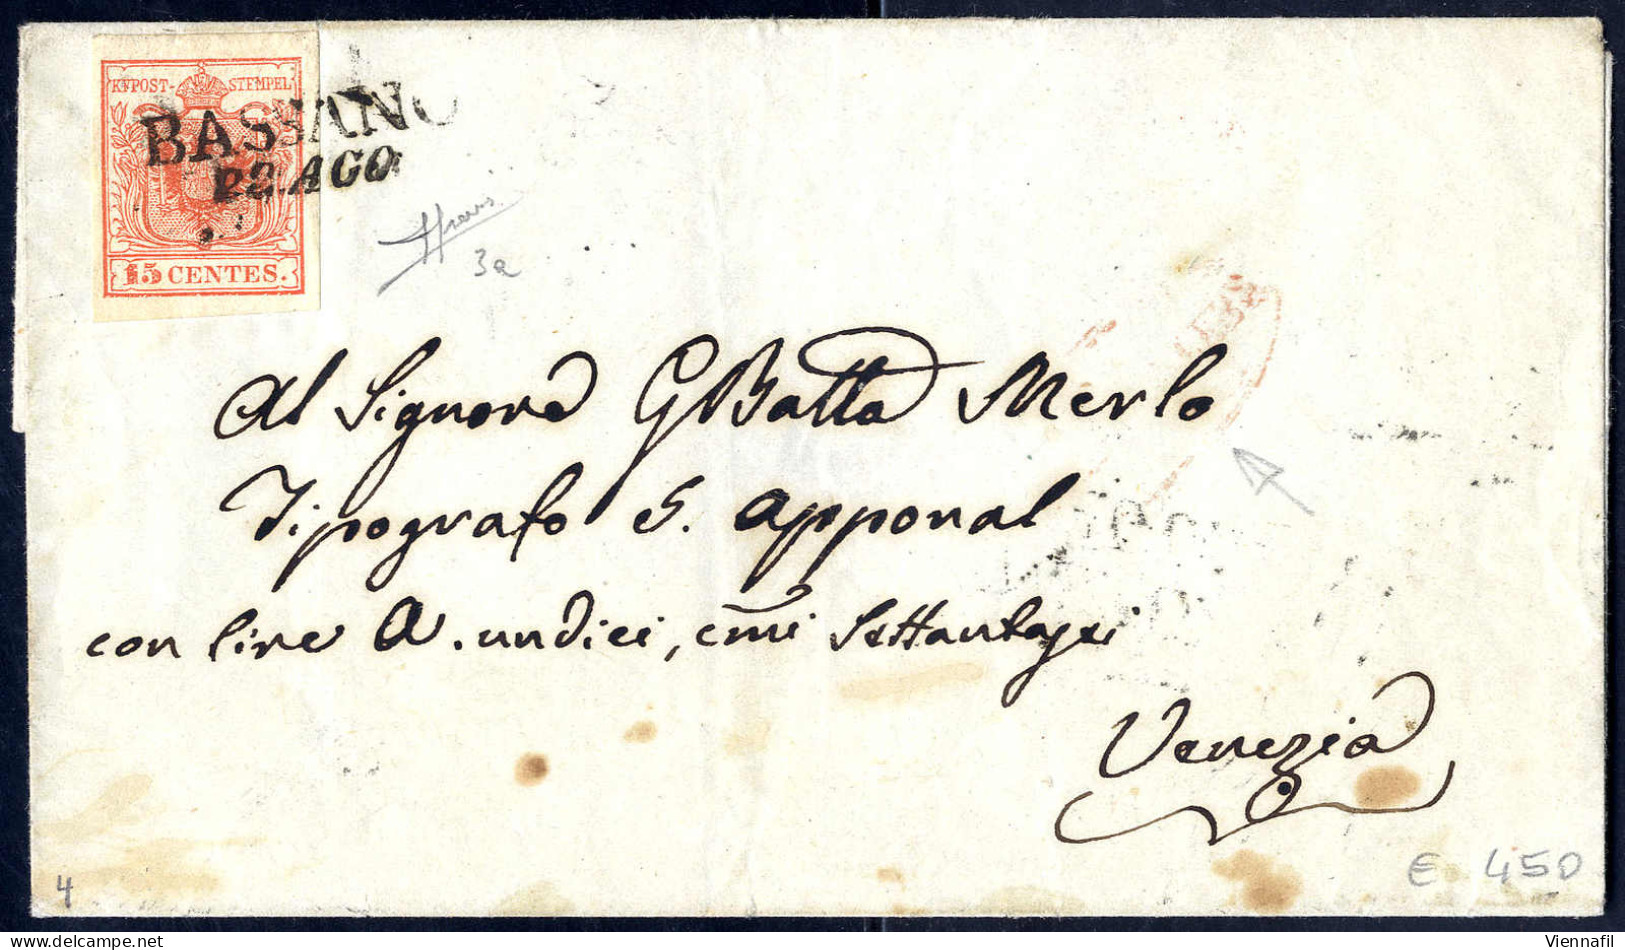 KKPOST-STEMPEL
BASSANO
22.AGO
15 CENTES.
3a
Al Signore GBatta Merlo
Tipografo S. Apponal
con lire A. undici, cmi Settantasei
Venezia
4
€ 450
Viennafil